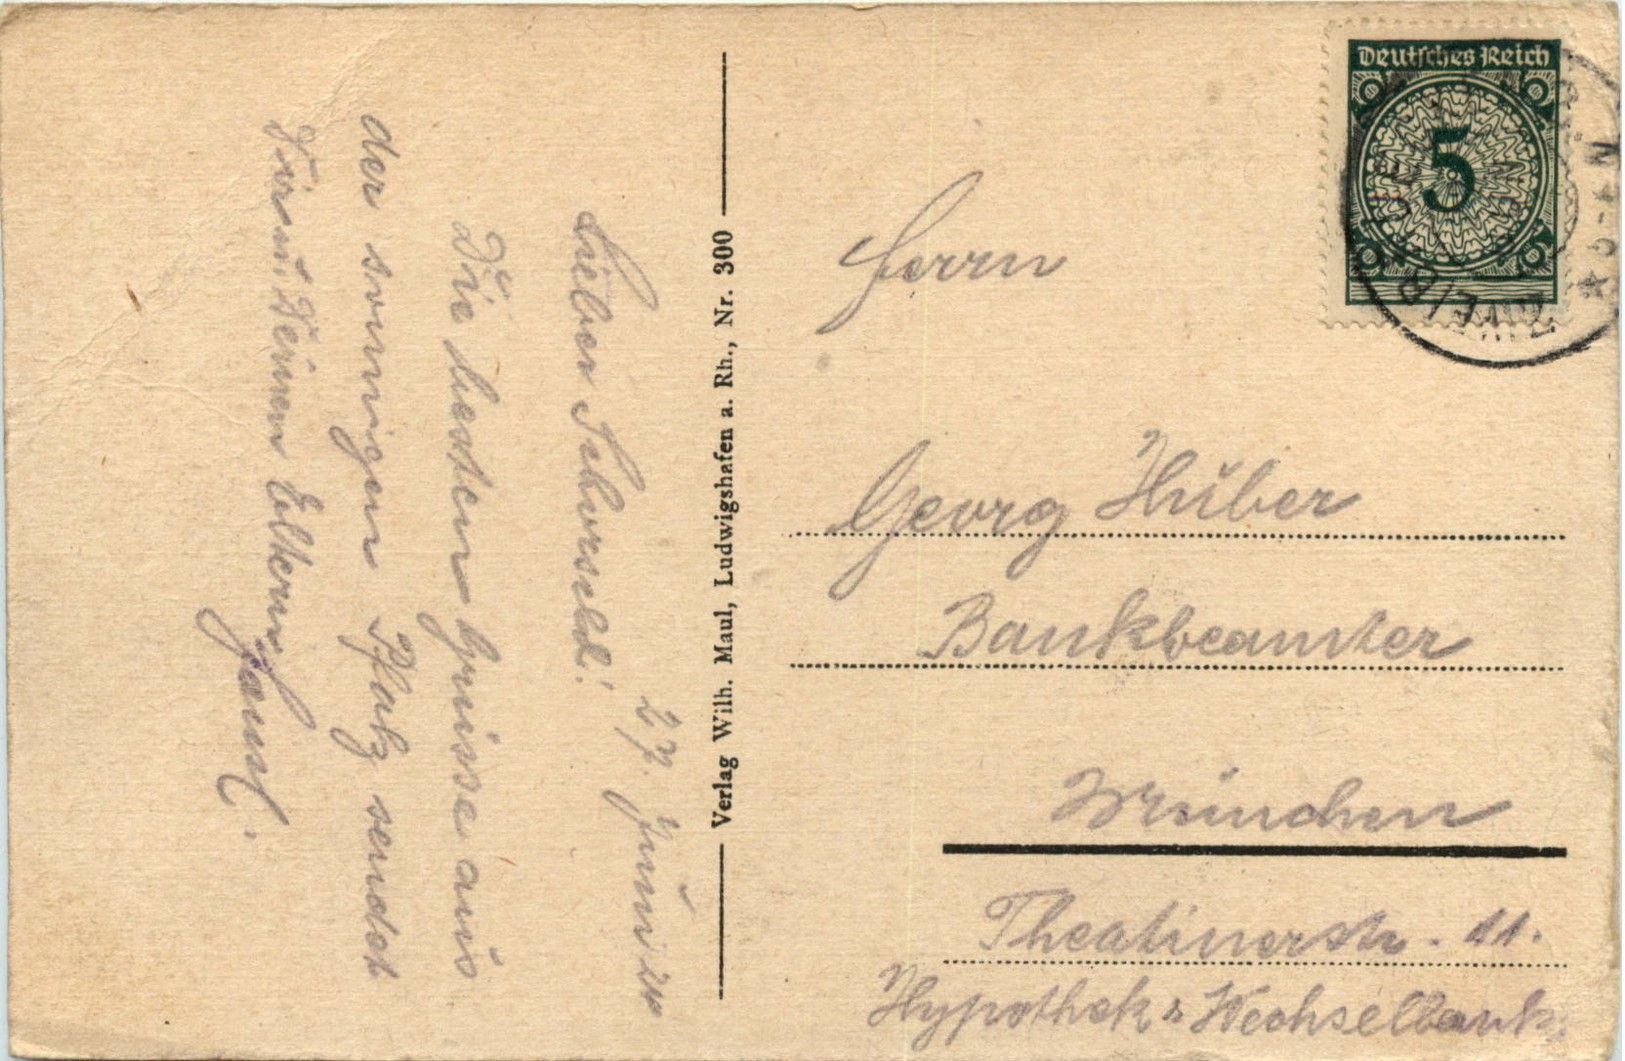 27. Juni 24
Lieber Schorschl!
Die besten Grüsse aus
der sonnigen Pfalz sendet
Dir und Deinen Eltern
Verlag Wilh. Maul, Ludwigshafen a. Rh., Nr. 300
Deutsches Reich
5
Herrn
Georg Huber
Bankbeamter
München
Theatinerstr. 11.
Hypothek & Wechselbank